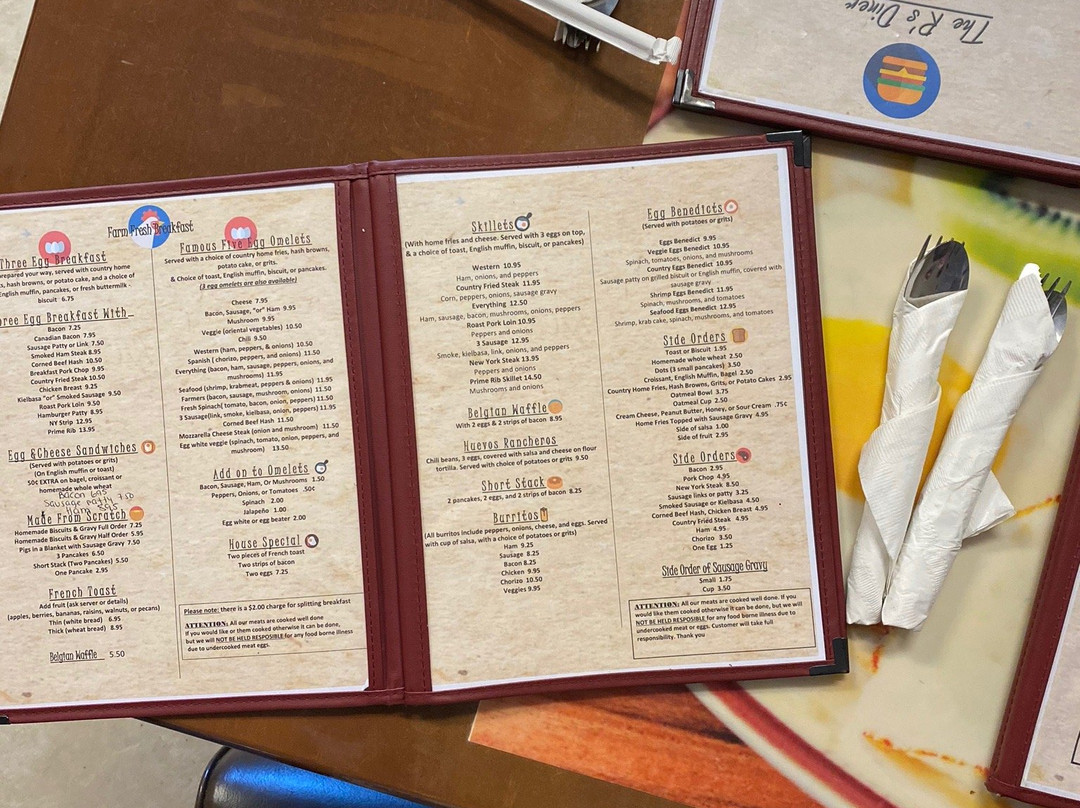 The R's Diner
Farm Fresh Breakfast
Three Egg Breakfast
prepared your way, served with country home
hash browns, or potato cake, and a choice of
English muffin, pancakes, or fresh buttermilk
biscuit 6.75
Three Egg Breakfast With
Bacon 7.25
Canadian Bacon 7.95
Sausage Patty or Link 7.50
Smoked Ham Steak 8.95
Corned Beef Hash 10.50
Breakfast Pork Chop 9.95
Country Fried Steak 10.50
Chicken Breast 9.25
Kielbasa "or" Smoked Sausage 9.50
Roast Pork Loin 9.50
Hamburger Patty 8.95
NY Strip 12.95
Prime Rib 13.95
Egg &Cheese Sandwiches
(Served with potatoes or grits)
(On English muffin or toast)
50¢ EXTRA on bagel, croissant or
homemade whole wheat
Bacon 6.95
Sausage patty 7.50
Ham 8.95
Made From Scratch
Homemade Biscuits & Gravy Full Order 7.25
Homemade Biscuits & Gravy Half Order 5.95
Pigs in a Blanket with Sausage Gravy 7.50
3 Pancakes 6.50
Short Stack (Two Pancakes) 5.50
One Pancake 2.95
French Toast
Add fruit (ask server or details)
(apples, berries, bananas, raisins, walnuts, or pecans)
Thin (white bread) 6.95
Thick (wheat bread) 8.95
Belgian Waffle 5.50
Famous Five Egg Omelets
Served with a choice of country home fries, hash browns,
potato cake, or grits.
& Choice of toast, English muffin, biscuit, or pancakes.
(3 egg omelets are also available)
Cheese 7.95
Bacon, Sausage, "or" Ham 9.95
Mushroom 9.95
Veggie (oriental vegetables) 10.50
Chili 9.50
Western (ham, peppers, & onions) 10.50
Spanish ( chorizo, peppers, and onions) 11.50
Everything (bacon, ham, sausage, peppers, onions, and
mushrooms) 11.95
Seafood (shrimp, krabmeat, peppers & onions) 11.95
Farmers (bacon, sausage, mushroom, onions) 11.50
Fresh Spinach( tomato, bacon, onion, peppers) 11.50
3 Sausage(link, smoke, kielbasa, onion, pepper) 11.95
Corned Beef Hash 11.50
Mozzarella Cheese Steak (onion and mushroom) 11.50
Egg white veggie (spinach, tomato, onion, peppers, and
mushroom) 13.50
Add on to Omelets
Bacon, Sausage, Ham, Or Mushrooms 1.50
Peppers, Onions, or Tomatoes .50¢
Spinach 2.00
Jalapeño 1.00
Egg white or egg beater 2.00
House Special
Two pieces of French toast
Two strips of bacon
Two eggs 7.25
Please note: there is a $2.00 charge for splitting breakfast
ATTENTION: All our meats are cooked well done
If you would like or them cooked otherwise it can be done,
but we will NOT BE HELD RESPOSIBLE for any food borne illness
due to undercooked meat eggs.
Skillets
(With home fries and cheese. Served with 3 eggs on top,
& a choice of toast, English muffin, biscuit, or pancakes)
Western 10.95
Ham, onions, and peppers
Country Fried Steak 11.95
Corn, peppers, onions, sausage gravy
Everything 12.50
Ham, sausage, bacon, mushrooms, onions, peppers
Roast Pork Loin 10.95
Peppers and onions
3 Sausage 12.95
Smoke, kielbasa, link, onions, and peppers
New York Steak 13.95
Peppers and onions
Prime Rib Skillet 14.50
Mushrooms and onions
Belgian Waffle
With 2 eggs & 2 strips of bacon 8.95
Huevos Rancheros
Chili beans, 3 eggs, covered with salsa and cheese on flour
tortilla. Served with choice of potatoes or grits 9.50
Short Stack
2 pancakes, 2 eggs, and 2 strips of bacon 8.25
Burritos
(All burritos include peppers, onions, cheese, and eggs. Served
with cup of salsa, with a choice of potatoes or grits)
Ham 9.25
Sausage 8.25
Bacon 8.25
Chicken 9.95
Chorizo 10.50
Veggies 9.95
Egg Benedicts
(Served with potatoes or grits)
Eggs Benedict 9.95
Veggie Eggs Benedict 10.95
Spinach, tomatoes, onions, and mushrooms
Country Eggs Benedict 10.95
Sausage patty on grilled biscuit or English muffin, covered with
sausage gravy
Shrimp Eggs Benedict 11.95
Spinach, mushrooms, and tomatoes
Seafood Eggs Benedict 12.95
Shrimp, krab cake, spinach, mushrooms, and tomatoes
Side Orders
Toast or Biscuit 1.95
Homemade whole wheat 2.50
Dots (3 small pancakes) 3.50
Croissant, English Muffin, Bagel 2.50
Country Home Fries, Hash Browns, Grits, or Potato Cakes 2.95
Oatmeal Bowl 3.75
Oatmeal Cup 2.50
Cream Cheese, Peanut Butter, Honey, or Sour Cream .75¢
Home Fries Topped with Sausage Gravy 4.95
Side of salsa 1.00
Side of fruit 2.95
Side Orders
Bacon 2.95
Pork Chop 4.95
New York Steak 8.50
Sausage links or patty 3.25
Smoked Sausage or Kielbasa 4.50
Corned Beef Hash, Chicken Breast 4.95
Country Fried Steak 4.95
Ham 4.95
Chorizo 3.50
One Egg 1.25
Side Order of Sausage Gravy
Small 1.75
Cup 3.50
ATTENTION: All our meats are cooked well done. If you
would like them cooked otherwise it can be done, but we will
NOT BE HELD RESPOSIBLE for any food borne illness due to
undercooked meat or eggs. Customer will take full
responsibility. Thank you